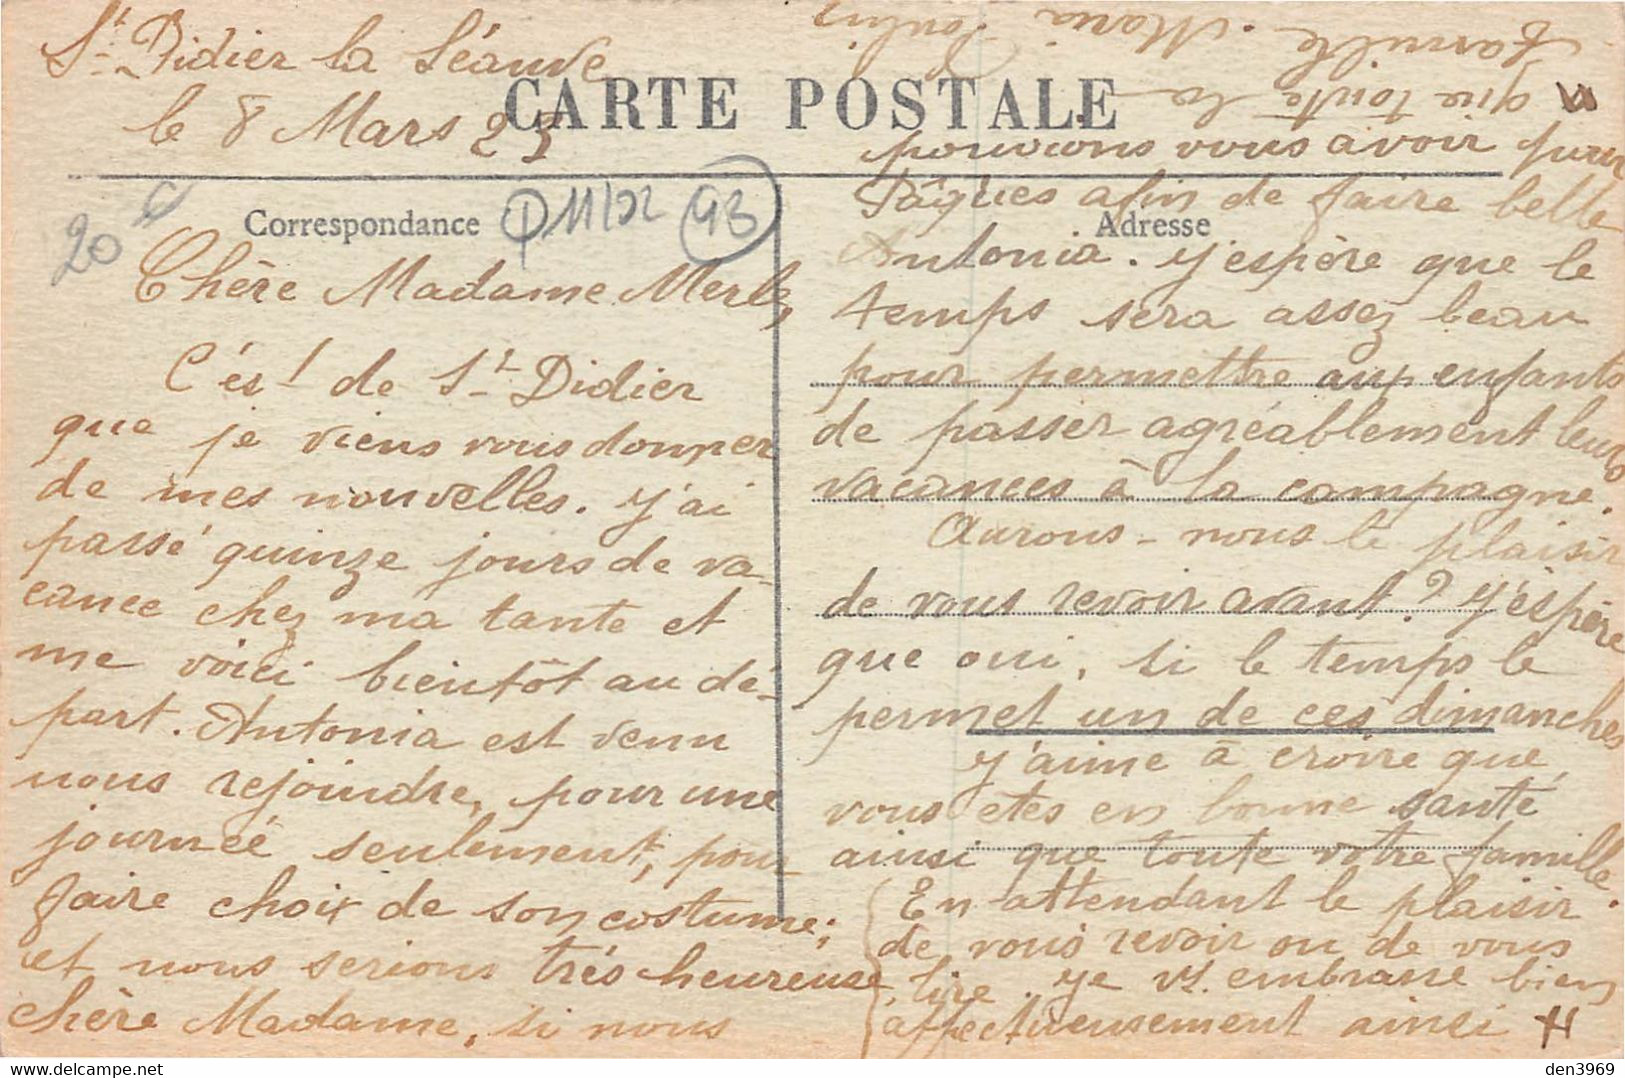 St Didier la Séauve
le 8 Mars 23
CARTE POSTALE
Correspondance
Adresse
20
D11/02
93
Chère Madame Merle,
C'ést de St Didier
que je viens vous donner
de mes nouvelles. J'ai
passé quinze jours de va-
cance chez ma tante et
me voici bientôt au dé-
part. Antonia est venu
nous rejoindre, pour une
journéé seulement, pour
faire choix de son costume;
et nous serions trés heureuse
chère Madame, si nous
pouvions vous avoir pour
Pâques afin de faire belle
Antonia. J'espère que le
temps sera assez beau
pour permettre aux enfants
de passer agréablement leurs
vacances à la campagne.
Aurons-nous le plaisir
de vous revoir avant? J'éspère
que oui, si le temps le
permet un de ces dimanches
J'aime à croire que
vous êtes en bonne santé
ainsi que toute votre famille.
En attendant le plaisir
de vous revoir ou de vous
lire. Je vs. embrasse bien
affectueusement ainsi
que toute la
famille. Maria
den3969